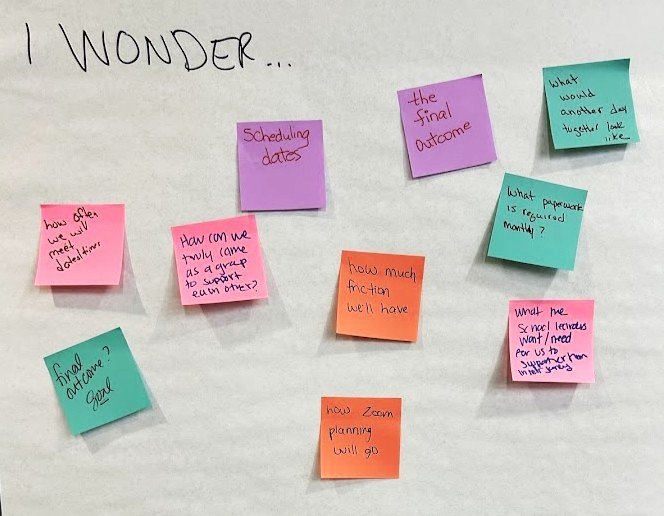 I WONDER...
Scheduling
dates
the
final
outcome
What
would
another day
together look
like
how often
we will
meet
dates/times
How can we
truly come
as a group
to support
each other?
What paperwork
is required
monthly?
how much
friction
we'll have
What the
School leaders
Want/need
for us to
support them
in their
final
outcome?
goal
how Zoom
planning
will go